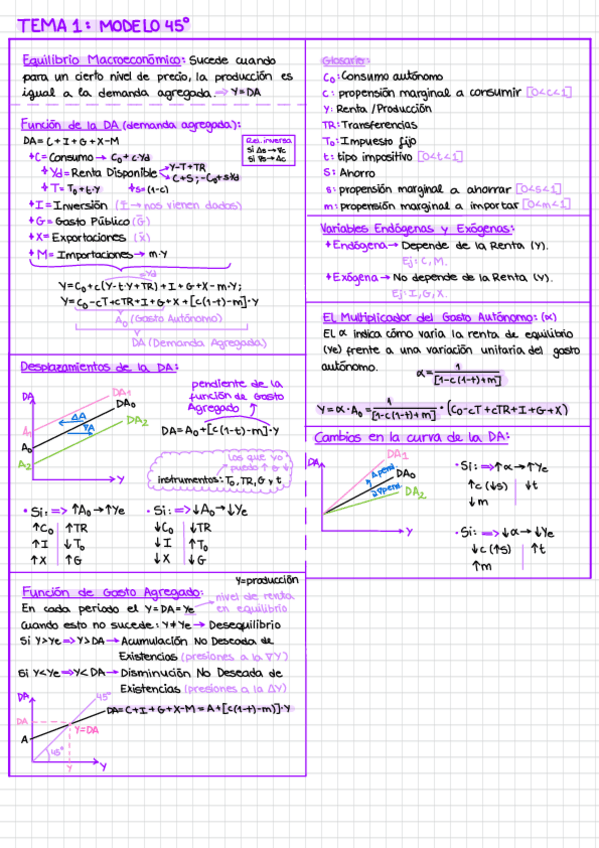 TEMA 1: MODELO 45°
Equilibrio Macroeconómico: Sucede cuando
para un cierto nivel de precio, la producción es
igual a la demanda agregada. => Y=DA
Función de la DA (demanda agregada):
DA = C + I + G + X-M
C= Consumo → C₀ + c·Yd
Yd = Renta Disponible
Y-T+TR
C+S ; -C₀+s·Yd
T = T₀ + t·y
s=(1-c)
I = Inversión (Ī → nos vienen dados)
G = Gasto Público (Ḡ)
X = Exportaciones (x̄)
M = Importaciones → m·y
Rel. inversa
si Δs → ∇c
si ∇s → Δc
=Yd
Y= C₀ + c(Y-t·Y+TR) + I + G + X - m·Y;
Y= C₀-cT+cTR+I+G+X + [c(1-t)-m]·Y
A₀ (Gasto Autónomo)
DA (Demanda Agregada)
Desplazamientos de la DA:
DA
DA1
DA₀
DA2
ΔA
∇A
A1
A₀
A2
Y
pendiente de la
función de Gasto
Agregado
DA= A₀+[c(1-t)-m]·Y
los que yo
puedo ↑ o ↓
instrumentos: T₀, TR, G y t
• Si: => ↑A₀ → ↑Ye
↑C₀ | ↑TR
↑I | ↓T₀
↑X | ↑G
• Si: => ↓A₀ → ↓Ye
↓C₀ | ↓TR
↓I | ↑T₀
↓X | ↓G
Y=producción
Función de Gasto Agregado:
nivel de renta
en equilibrio
En cada periodo el Y=DA=Ye
Cuando esto no sucede: Y≠Ye → Desequilibrio
Si Y>Ye => Y>DA → Acumulación No Deseada de
Existencias (presiones a la ∇Y)
Si Y<Ye => Y<DA → Disminución No Deseada de
Existencias (presiones a la ΔY)
DA
45°
DA=C+I+G+X-M = A+[c(1-t)-m)]·Y
DA
Y=DA
A
45°
Y
Y
Glosario:
C₀: Consumo autónomo
c: propensión marginal a consumir [0<c<1]
Y: Renta / Producción
TR: Transferencias
T₀: Impuesto fijo
t: tipo impositivo [0<t<1]
S: Ahorro
s: propensión marginal a ahorrar [0<s<1]
m: propensión marginal a importar [0<m<1]
Variables Endógenas y Exógenas:
Endógena → Depende de la Renta (Y).
Ej: C, M.
Exógena → No depende de la Renta (Y).
Ej: I, G, X.
El Multiplicador del Gasto Autónomo: (α)
El α indica cómo varía la renta de equilibrio
(Ye) frente a una variación unitaria del gasto
autónomo.
α= 1/[1-c(1-t)+m]
Y = α·A₀ = 1/[1-c(1-t)+m] · (C₀-cT+cTR+I+G+X)
Cambios en la curva de la DA:
DA
DA1
DA₀
DA2
Δpend.
∇pend.
Y
• Si: => ↑α → ↑Ye
↑c (↓s) | ↓t
↓m
• Si: => ↓α → ↓Ye
↓c (↑s) | ↑t
↑m